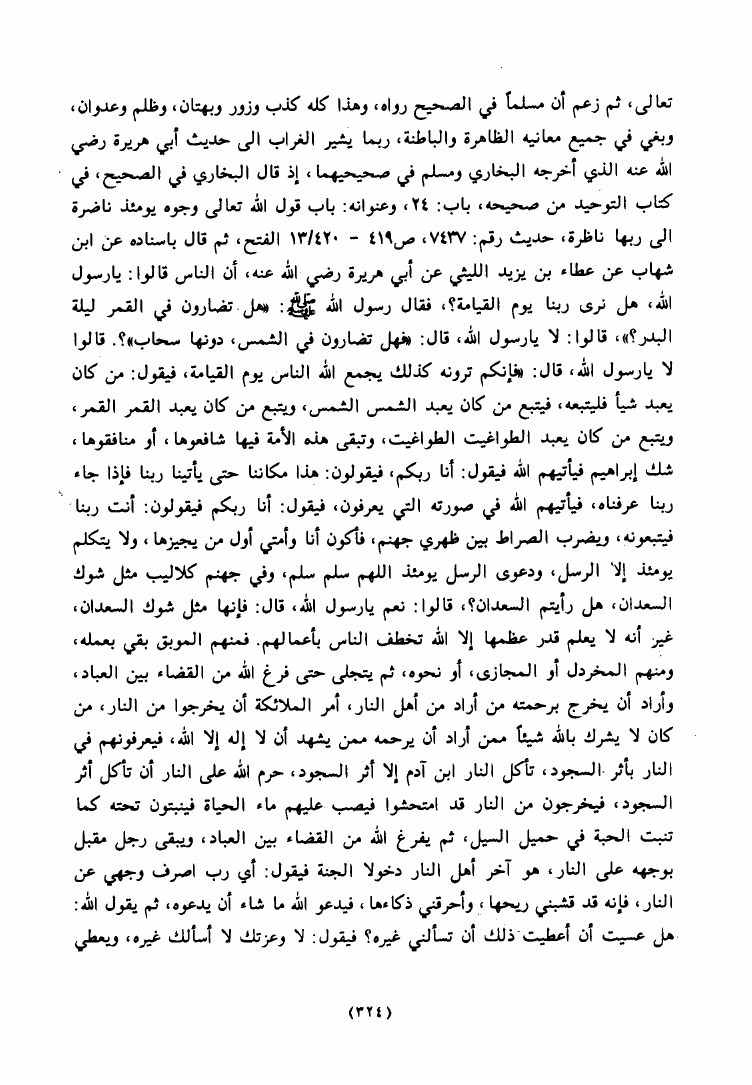 تعالى، ثم زعم أن مسلماً في الصحيح رواه، وهذا كله كذب وزور وبهتان، وظلم وعدوان،
وبغي في جميع معانيه الظاهرة والباطنة، ربما يشير الغراب الى حديث أبي هريرة رضي
الله عنه الذي أخرجه البخاري ومسلم في صحيحيهما، إذ قال البخاري في الصحيح، في
كتاب التوحيد من صحيحه، باب: ٢٤، وعنوانه: باب قول الله تعالى وجوه يومئذ ناضرة
الى ربها ناظرة، حديث رقم: ٧٤٣٧، ص٤١٩ - ١٣/٤٢٠ الفتح، ثم قال باسناده عن ابن
شهاب عن عطاء بن يزيد الليثي عن أبي هريرة رضي الله عنه، أن الناس قالوا: يارسول
الله، هل نرى ربنا يوم القيامة؟، فقال رسول الله ﷺ: «هل تضارون في القمر ليلة
البدر؟»، قالوا: لا يارسول الله، قال: «فهل تضارون في الشمس، دونها سحاب»؟. قالوا
لا يارسول الله، قال: «فإنكم ترونه كذلك يجمع الله الناس يوم القيامة، فيقول: من كان
يعبد شيأ فليتبعه، فيتبع من كان يعبد الشمس الشمس، ويتبع من كان يعبد القمر القمر،
ويتبع من كان يعبد الطواغيت الطواغيت، وتبقى هذه الأمة فيها شافعوها، أو منافقوها،
شك إبراهيم فيأتيهم الله فيقول: أنا ربكم، فيقولون: هذا مكاننا حتى يأتينا ربنا فإذا جاء
ربنا عرفناه، فيأتيهم الله في صورته التي يعرفون، فيقول: أنا ربكم فيقولون: أنت ربنا
فيتبعونه، ويضرب الصراط بين ظهري جهنم، فأكون أنا وأمتي أول من يجيزها، ولا يتكلم
يومئذ إلا الرسل، ودعوى الرسل يومئذ اللهم سلم سلم، وفي جهنم كلاليب مثل شوك
السعدان، هل رأيتم السعدان؟، قالوا: نعم يارسول الله، قال: فإنها مثل شوك السعدان،
غير أنه لا يعلم قدر عظمها إلا الله تخطف الناس بأعمالهم. فمنهم الموبق بقي بعمله،
ومنهم المخردل أو المجازى، أو نحوه، ثم يتجلى حتى فرغ الله من القضاء بين العباد،
وأراد أن يخرج برحمته من أراد من أهل النار، أمر الملائكة أن يخرجوا من النار، من
كان لا يشرك بالله شيئاً ممن أراد أن يرحمه ممن يشهد أن لا إله إلا الله، فيعرفونهم في
النار بأثر السجود، تأكل النار ابن آدم إلا أثر السجود، حرم الله على النار أن تأكل أثر
السجود، فيخرجون من النار قد امتحشوا فيصب عليهم ماء الحياة فينبتون تحته كما
تنبت الحبة في حميل السيل، ثم يفرغ الله من القضاء بين العباد، ويبقى رجل مقبل
بوجهه على النار، هو آخر أهل النار دخولا الجنة فيقول: أي رب اصرف وجهي عن
النار، فإنه قد قشبني ريحها، وأحرقني ذكاءها، فيدعو الله ما شاء أن يدعوه، ثم يقول الله:
هل عسيت أن أعطيت ذلك أن تسألني غيره؟ فيقول: لا وعزتك لا أسألك غيره، ويعطي
(٣٢٤)